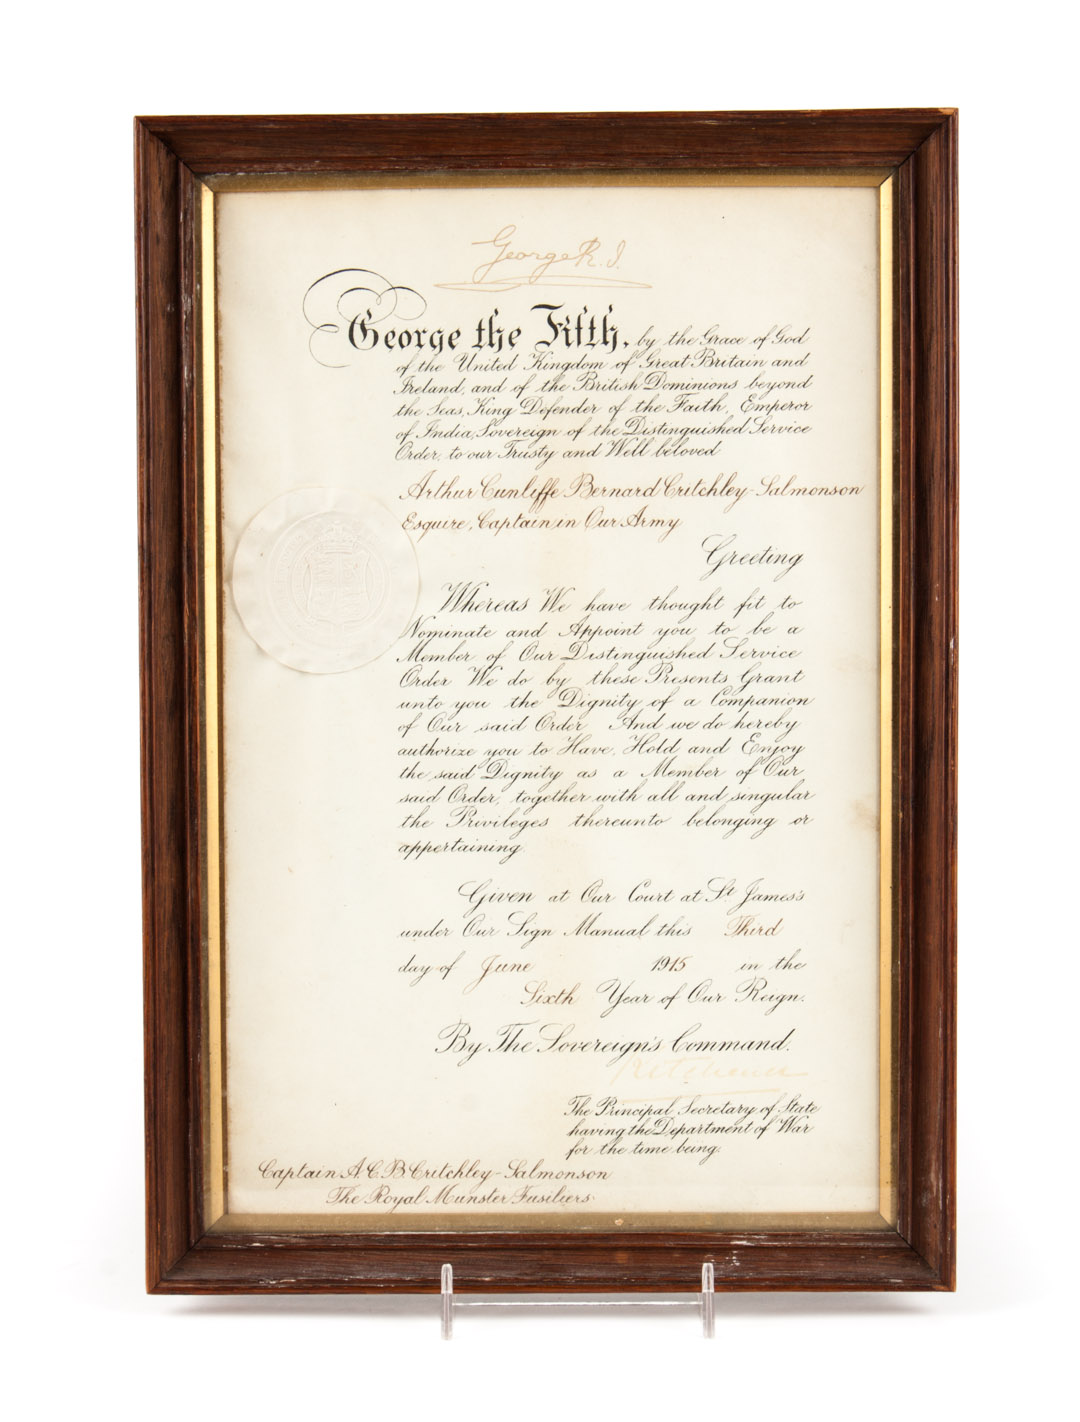 George R. I.
George the Fifth, by the Grace of God
of the United Kingdom of Great Britain and
Ireland, and of the British Dominions beyond
the Seas, King Defender of the Faith, Emperor
of India, Sovereign of the Distinguished Service
Order, to our Trusty and Well beloved
Arthur Cunliffe Bernard Critchley-Salmonson
Esquire, Captain in Our Army
Greeting
Whereas We have thought fit to
Nominate and Appoint you to be a
Member of Our Distinguished Service
Order We do by these Presents Grant
unto you the Dignity of a Companion
of Our said Order And we do hereby
authorize you to Have, Hold and Enjoy
the said Dignity as a Member of Our
said Order, together with all and singular
the Privileges thereunto belonging or
appertaining.
Given at Our Court at St James's
under Our Sign Manual this Third
day of June 1915 in the
Sixth Year of Our Reign.
By The Sovereign's Command.
Kitchener
The Principal Secretary of State
having the Department of War
for the time being.
Captain A.C.B. Critchley-Salmonson
The Royal Munster Fusiliers